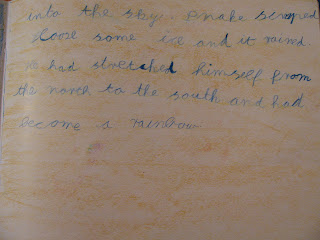 into the sky. Snake scraped
loose some ice and it rained.
he had stretched himself from
the north to the south and had
become a rainbow